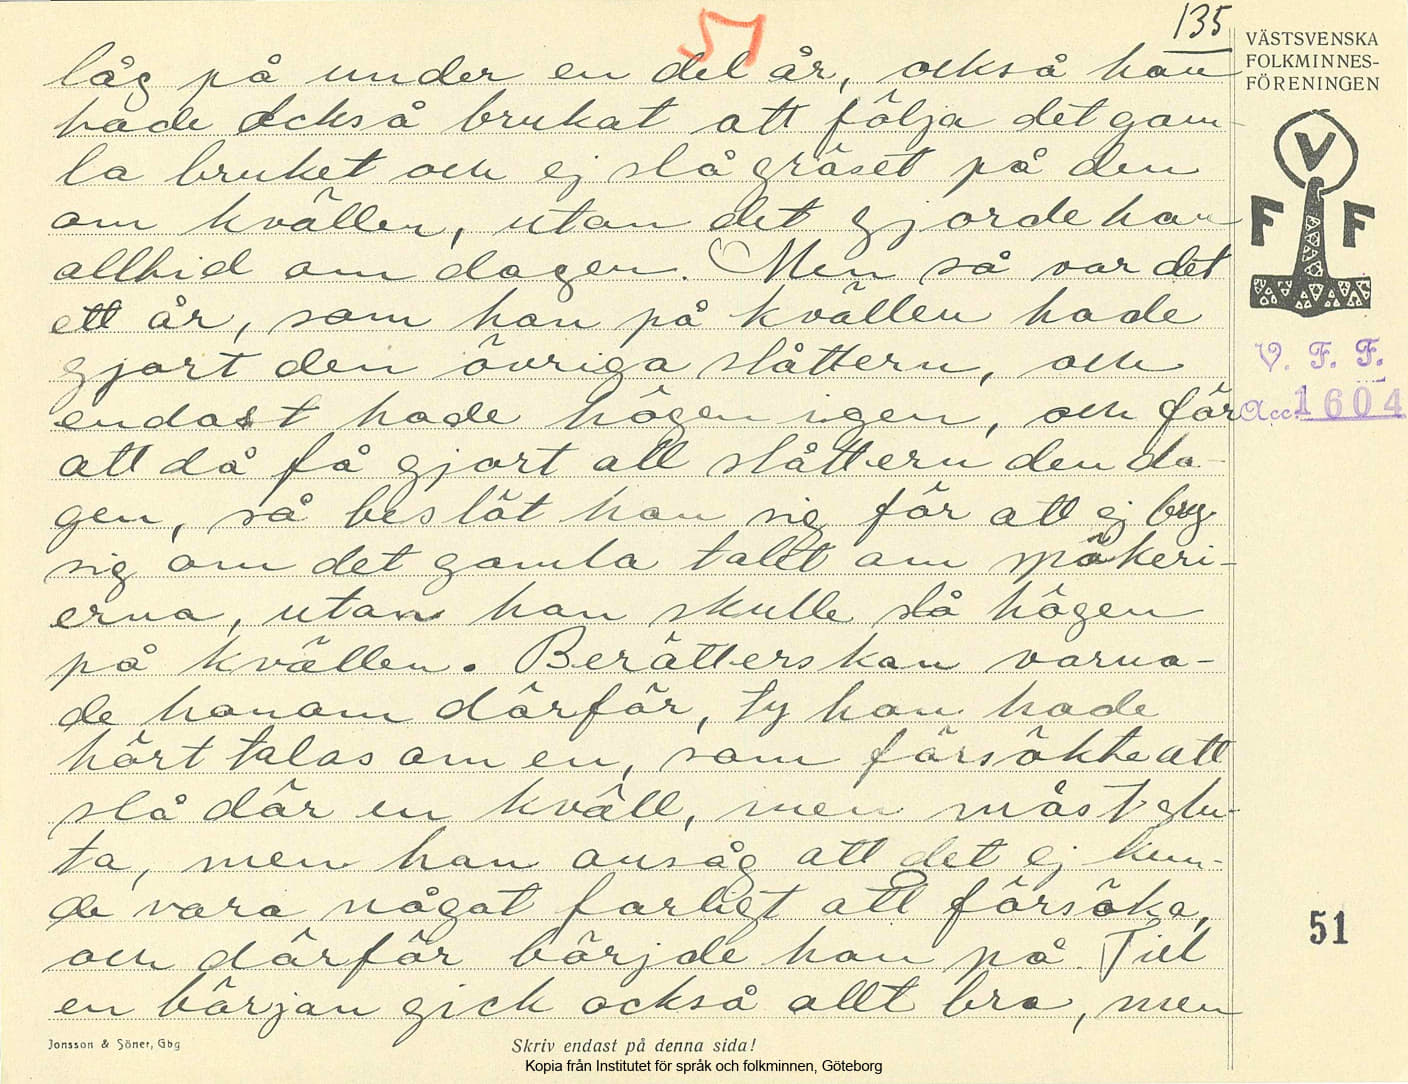 57
135
låg på under en del år, också han
hade också brukat att följa det gam-
la bruket och ej slå gräset på den
om kvällen, utan det gjorde han
alltid om dagen. Men så var det
ett år, som han på kvällen hade
gjort den övriga slåttern, och
endast hade högen igen, och för
att då få gjort all slåttern den da-
gen, så beslöt han sig för att ej bry
sig om det gamla talet om spökeri-
erna, utan han skulle slå högen
på kvällen. Berätterskan varna-
de honom därför, ty hon hade
hört talas om en, som försökte att
slå där en kväll, men måst slu-
ta, men han ansåg att det ej kun-
de vara något farligt att försöka,
och därför börjde han på. Till
en början gick också allt bra, men
VÄSTSVENSKA
FOLKMINNES-
FÖRENINGEN
V
F F
V. F. F.
Acc. 1604
51
Jonsson & Söner, Gbg
Skriv endast på denna sida!
Kopia från Institutet för språk och folkminnen, Göteborg